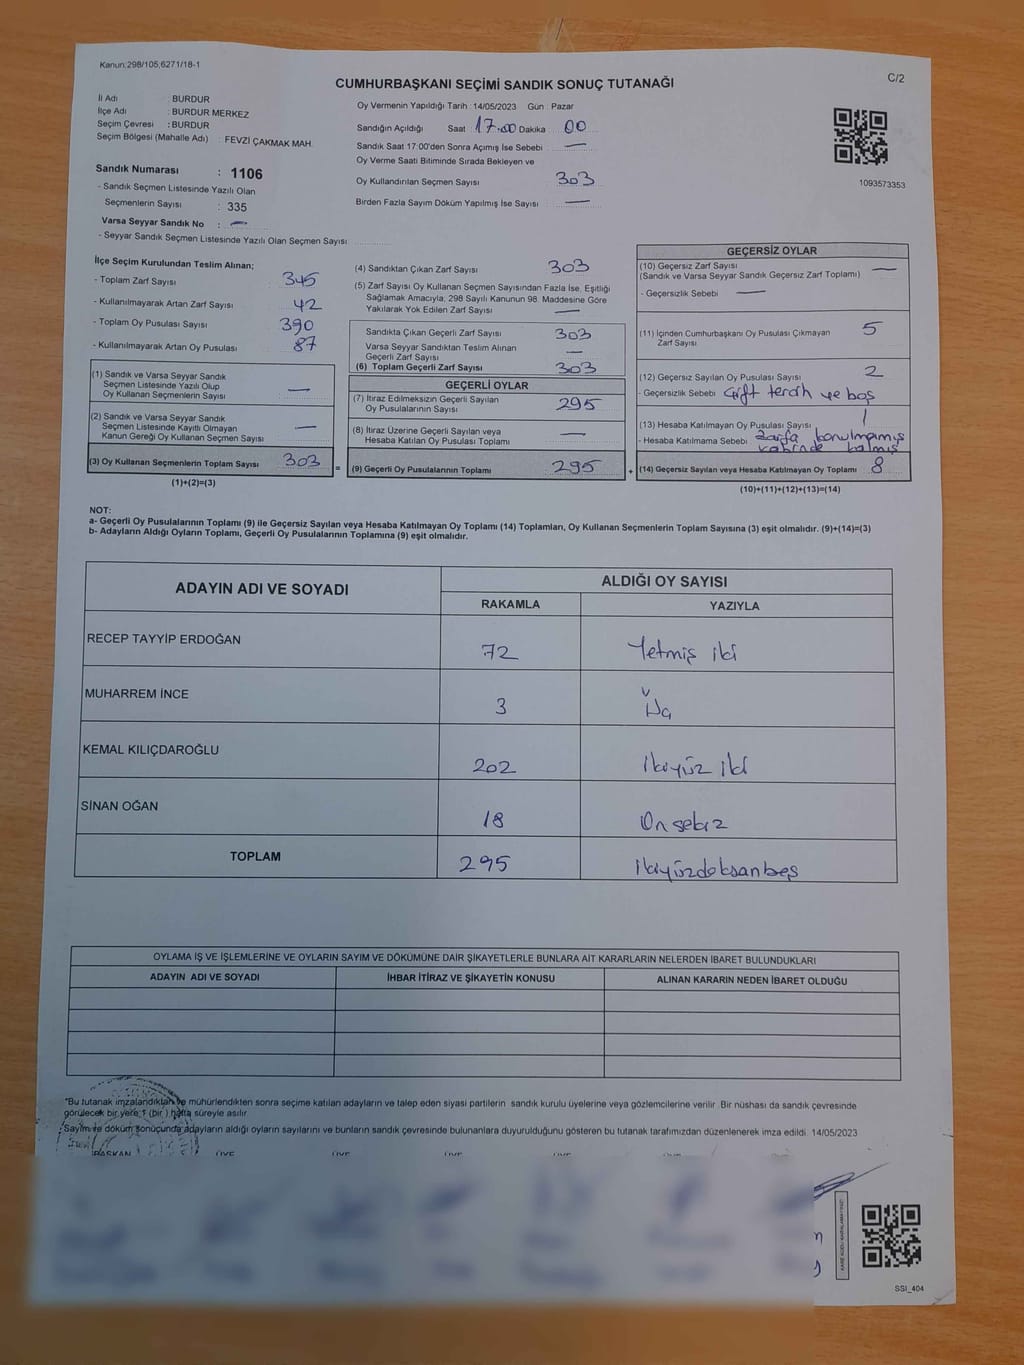 Kanun:298/105,6271/18-1
C/2
CUMHURBAŞKANI SEÇİMİ SANDIK SONUÇ TUTANAĞI
İl Adı : BURDUR
İlçe Adı : BURDUR MERKEZ
Seçim Çevresi : BURDUR
Seçim Bölgesi (Mahalle Adı) : FEVZİ ÇAKMAK MAH.
Sandık Numarası : 1106
- Sandık Seçmen Listesinde Yazılı Olan
Seçmenlerin Sayısı : 335
Varsa Seyyar Sandık No : —
- Seyyar Sandık Seçmen Listesinde Yazılı Olan Seçmen Sayısı
Oy Vermenin Yapıldığı Tarih : 14/05/2023 Gün : Pazar
Sandığın Açıldığı Saat : 17.00 Dakika : 00
Sandık Saat 17:00'den Sonra Açımış İse Sebebi —
Oy Verme Saati Bitiminde Sırada Bekleyen ve
Oy Kullandırılan Seçmen Sayısı 303
Birden Fazla Sayım Döküm Yapılmış İse Sayısı —
1093573353
İlçe Seçim Kurulundan Teslim Alınan;
- Toplam Zarf Sayısı 345
- Kullanılmayarak Artan Zarf Sayısı 42
- Toplam Oy Pusulası Sayısı 390
- Kullanılmayarak Artan Oy Pusulası 87
(1) Sandık ve Varsa Seyyar Sandık
Seçmen Listesinde Yazılı Olup
Oy Kullanan Seçmenlerin Sayısı —
(2) Sandık ve Varsa Seyyar Sandık
Seçmen Listesinde Kayıtlı Olmayan
Kanun Gereği Oy Kullanan Seçmen Sayısı —
(3) Oy Kullanan Seçmenlerin Toplam Sayısı 303 =
(1)+(2)=(3)
(4) Sandıktan Çıkan Zarf Sayısı 303
(5) Zarf Sayısı Oy Kullanan Seçmen Sayısından Fazla İse, Eşitliği
Sağlamak Amacıyla; 298 Sayılı Kanunun 98. Maddesine Göre
Yakılarak Yok Edilen Zarf Sayısı —
Sandıkta Çıkan Geçerli Zarf Sayısı 303
Varsa Seyyar Sandıktan Teslim Alınan
Geçerli Zarf Sayısı —
(6) Toplam Geçerli Zarf Sayısı 303
GEÇERLİ OYLAR
(7) İtiraz Edilmeksizin Geçerli Sayılan
Oy Pusulalarının Sayısı 295
(8) İtiraz Üzerine Geçerli Sayılan veya
Hesaba Katılan Oy Pusulası Toplamı —
(9) Geçerli Oy Pusulalarının Toplamı 295 +
GEÇERSİZ OYLAR
(10) Geçersiz Zarf Sayısı
(Sandık ve Varsa Seyyar Sandık Geçersiz Zarf Toplamı) —
- Geçersizlik Sebebi —
(11) İçinden Cumhurbaşkanı Oy Pusulası Çıkmayan
Zarf Sayısı 5
(12) Geçersiz Sayılan Oy Pusulası Sayısı 2
- Geçersizlik Sebebi Çift tercih ve boş
(13) Hesaba Katılmayan Oy Pusulası Sayısı 1
- Hesaba Katılmama Sebebi Zarfa konulmamış
kabinde kalmış
(14) Geçersiz Sayılan veya Hesaba Katılmayan Oy Toplamı 8
(10)+(11)+(12)+(13)=(14)
NOT:
a- Geçerli Oy Pusulalarının Toplamı (9) ile Geçersiz Sayılan veya Hesaba Katılmayan Oy Toplamı (14) Toplamları, Oy Kullanan Seçmenlerin Toplam Sayısına (3) eşit olmalıdır. (9)+(14)=(3)
b- Adayların Aldığı Oyların Toplamı, Geçerli Oy Pusulalarının Toplamına (9) eşit olmalıdır.
ADAYIN ADI VE SOYADI
ALDIĞI OY SAYISI
RAKAMLA YAZIYLA
RECEP TAYYİP ERDOĞAN 72 Yetmiş iki
MUHARREM İNCE 3 Üç
KEMAL KILIÇDAROĞLU 202 İkiyüz iki
SİNAN OĞAN 18 On sekiz
TOPLAM 295 ikiyüzdoksanbeş
OYLAMA İŞ VE İŞLEMLERİNE VE OYLARIN SAYIM VE DÖKÜMÜNE DAİR ŞİKAYETLERLE BUNLARA AİT KARARLARIN NELERDEN İBARET BULUNDUKLARI
ADAYIN ADI VE SOYADI İHBAR İTİRAZ VE ŞİKAYETİN KONUSU ALINAN KARARIN NEDEN İBARET OLDUĞU
"Bu tutanak imzalandıktan ve mühürlendikten sonra seçime katılan adayların ve talep eden siyasi partilerin sandık kurulu üyelerine veya gözlemcilerine verilir. Bir nüshası da sandık çevresinde
görülecek bir yere 1 (bir ) hafta süreyle asılır.
Sayım ve döküm sonucunda adayların aldığı oyların sayılarını ve bunların sandık çevresinde bulunanlara duyurulduğunu gösteren bu tutanak tarafımızdan düzenlenerek imza edildi. 14/05/2023
BAŞKAN ÜYE ÜYE ÜYE ÜYE
SSI_404